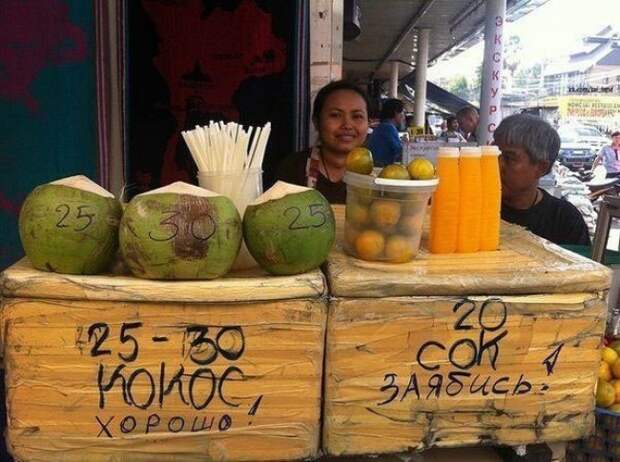 ЭКСКУР
25
30
25
25-30
КОКОС
ХОРОШО!
20
СОК
ЗАЯБИСЬ!